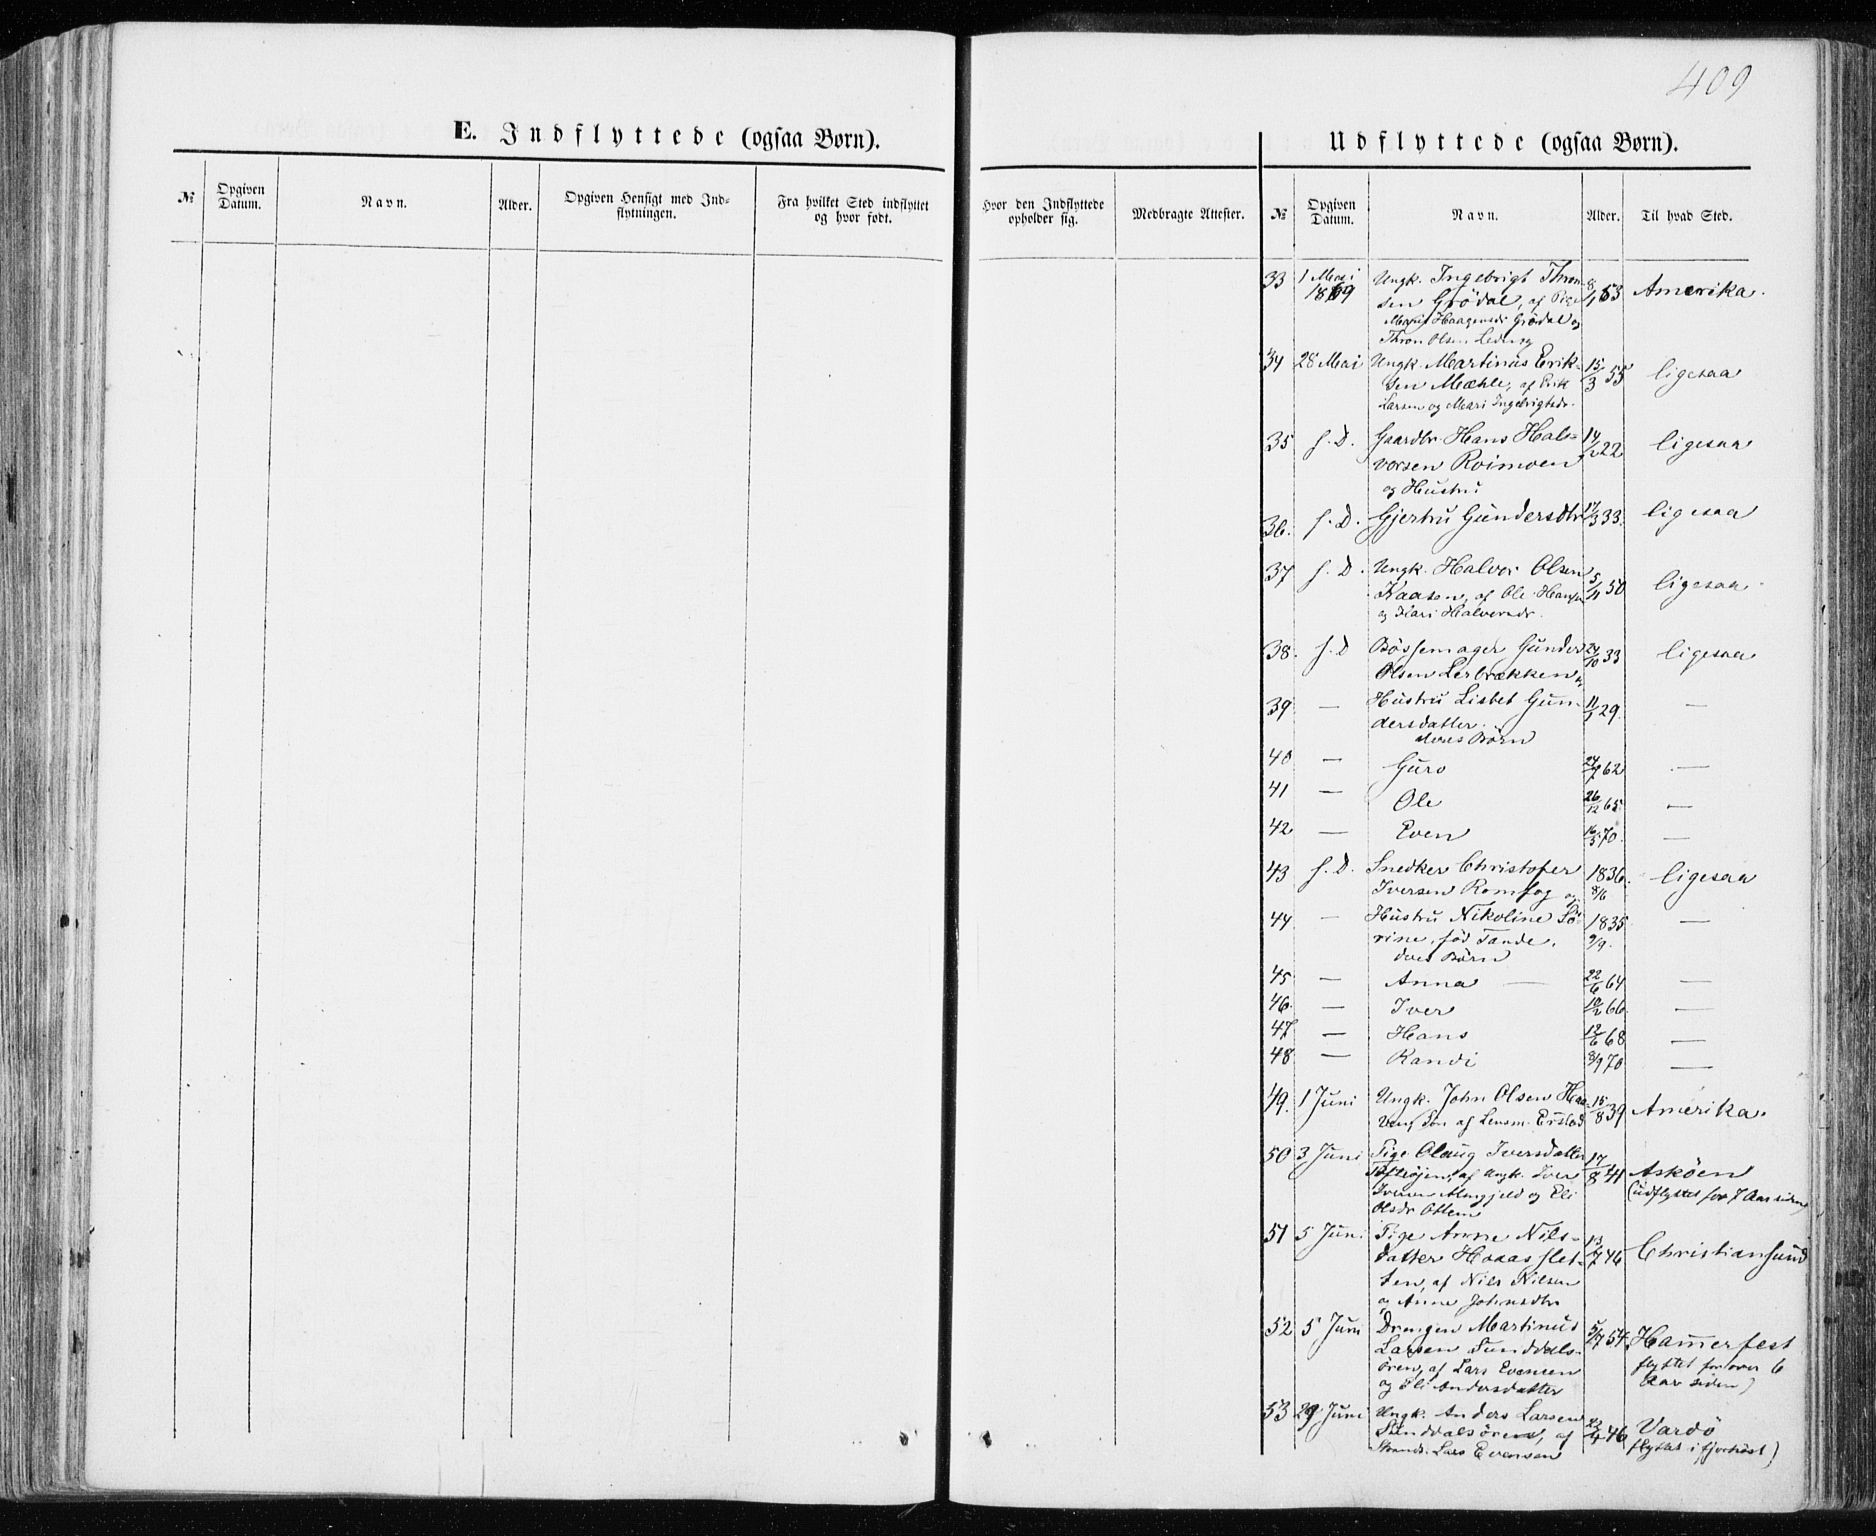 409
E. Indflyttede (ogsaa Børn).
Udflyttede (ogsaa Børn).
№ Opgiven Datum. Navn. Alder. Opgiven Hensigt med Indflytningen. Fra hvilket Sted indflyttet og hvor født. Hvor den Indflyttede opholder sig. Medbragte Attester. № Opgiven Datum. Navn. Alder. Til hvad Sted.
33 1 Mai Ungk. Ingebrigt Thron- 8/1 53 Amerika.
1869 sen Grödal, af Pige
Marit Haagensdr Grödal og
Thron Olsen
34 28 Mai Ungk. Martinus Erik- 15/3 55 ligesaa
sen Mæhle, af Erik
Larsen og Mari Ingebrigtsdr.
35 s. D. Gaardbr. Hans Hal- 14/2 22 ligesaa
vorsen Roimoen
og Hustru
36. s. D. Gjertru Gundersdtr 17/3 33. ligesaa
37 s. D. Ungk. Halvor Olsen 5/11 50 ligesaa
Kaasen, af Ole Hansen
og Kari Halvorsdr.
38. s. D Bössemager Gunder 24/10 33 ligesaa
Olsen Lerbrækken og
39 — Hustru Lisbet Gun- 11/1 29. —
dersdatter.
deres Börn
40 — Guro 62 —
41 — Ole 26/12 65 —
42 — Even 16/5 70. —
43 s. D. Snedker Christofer 1836. ligesaa
Iversen Romfog og 8/6
44 — Hustru Nikoline Sö- 1835 —
rine, föd Tande. 9/9.
deres Börn
45 — Anna — 22/6 64 —
46 — Iver 10/2 66 —
47 — Hans 12/6 68 —
48 — Randi 3/9 70 —
49. 1 Juni Ungk. John Olsen Haa- 15/8 39 Amerika.
ven, Sön af Lensm. Erstad
50 3 Juni Pige Olaug Iversdatter 17/8 41 Asköen
af Ungk. Iver (udflyttet for 7 Aar siden)
Iversen og Eli
Olsdr Ottem
51 5 Juni Pige Anne Nils- 13/7 46 Christiansund
datter Hoaasslet-
ten, af Nils Nilsen
og Anne Johnsdtr
52 5 Juni Drengen Martinus 5/7 54. Hamerfest
Larsen Sunddals- flyttet for over 6
ören, af Lars Evensen Aar siden)
og Eli Andersdatter
53 29 Juni Ungk. Anders Larsen 46 Vardö
Sunddalsören, af flyttet i fjorhöst)
Strands. Lars Evensen